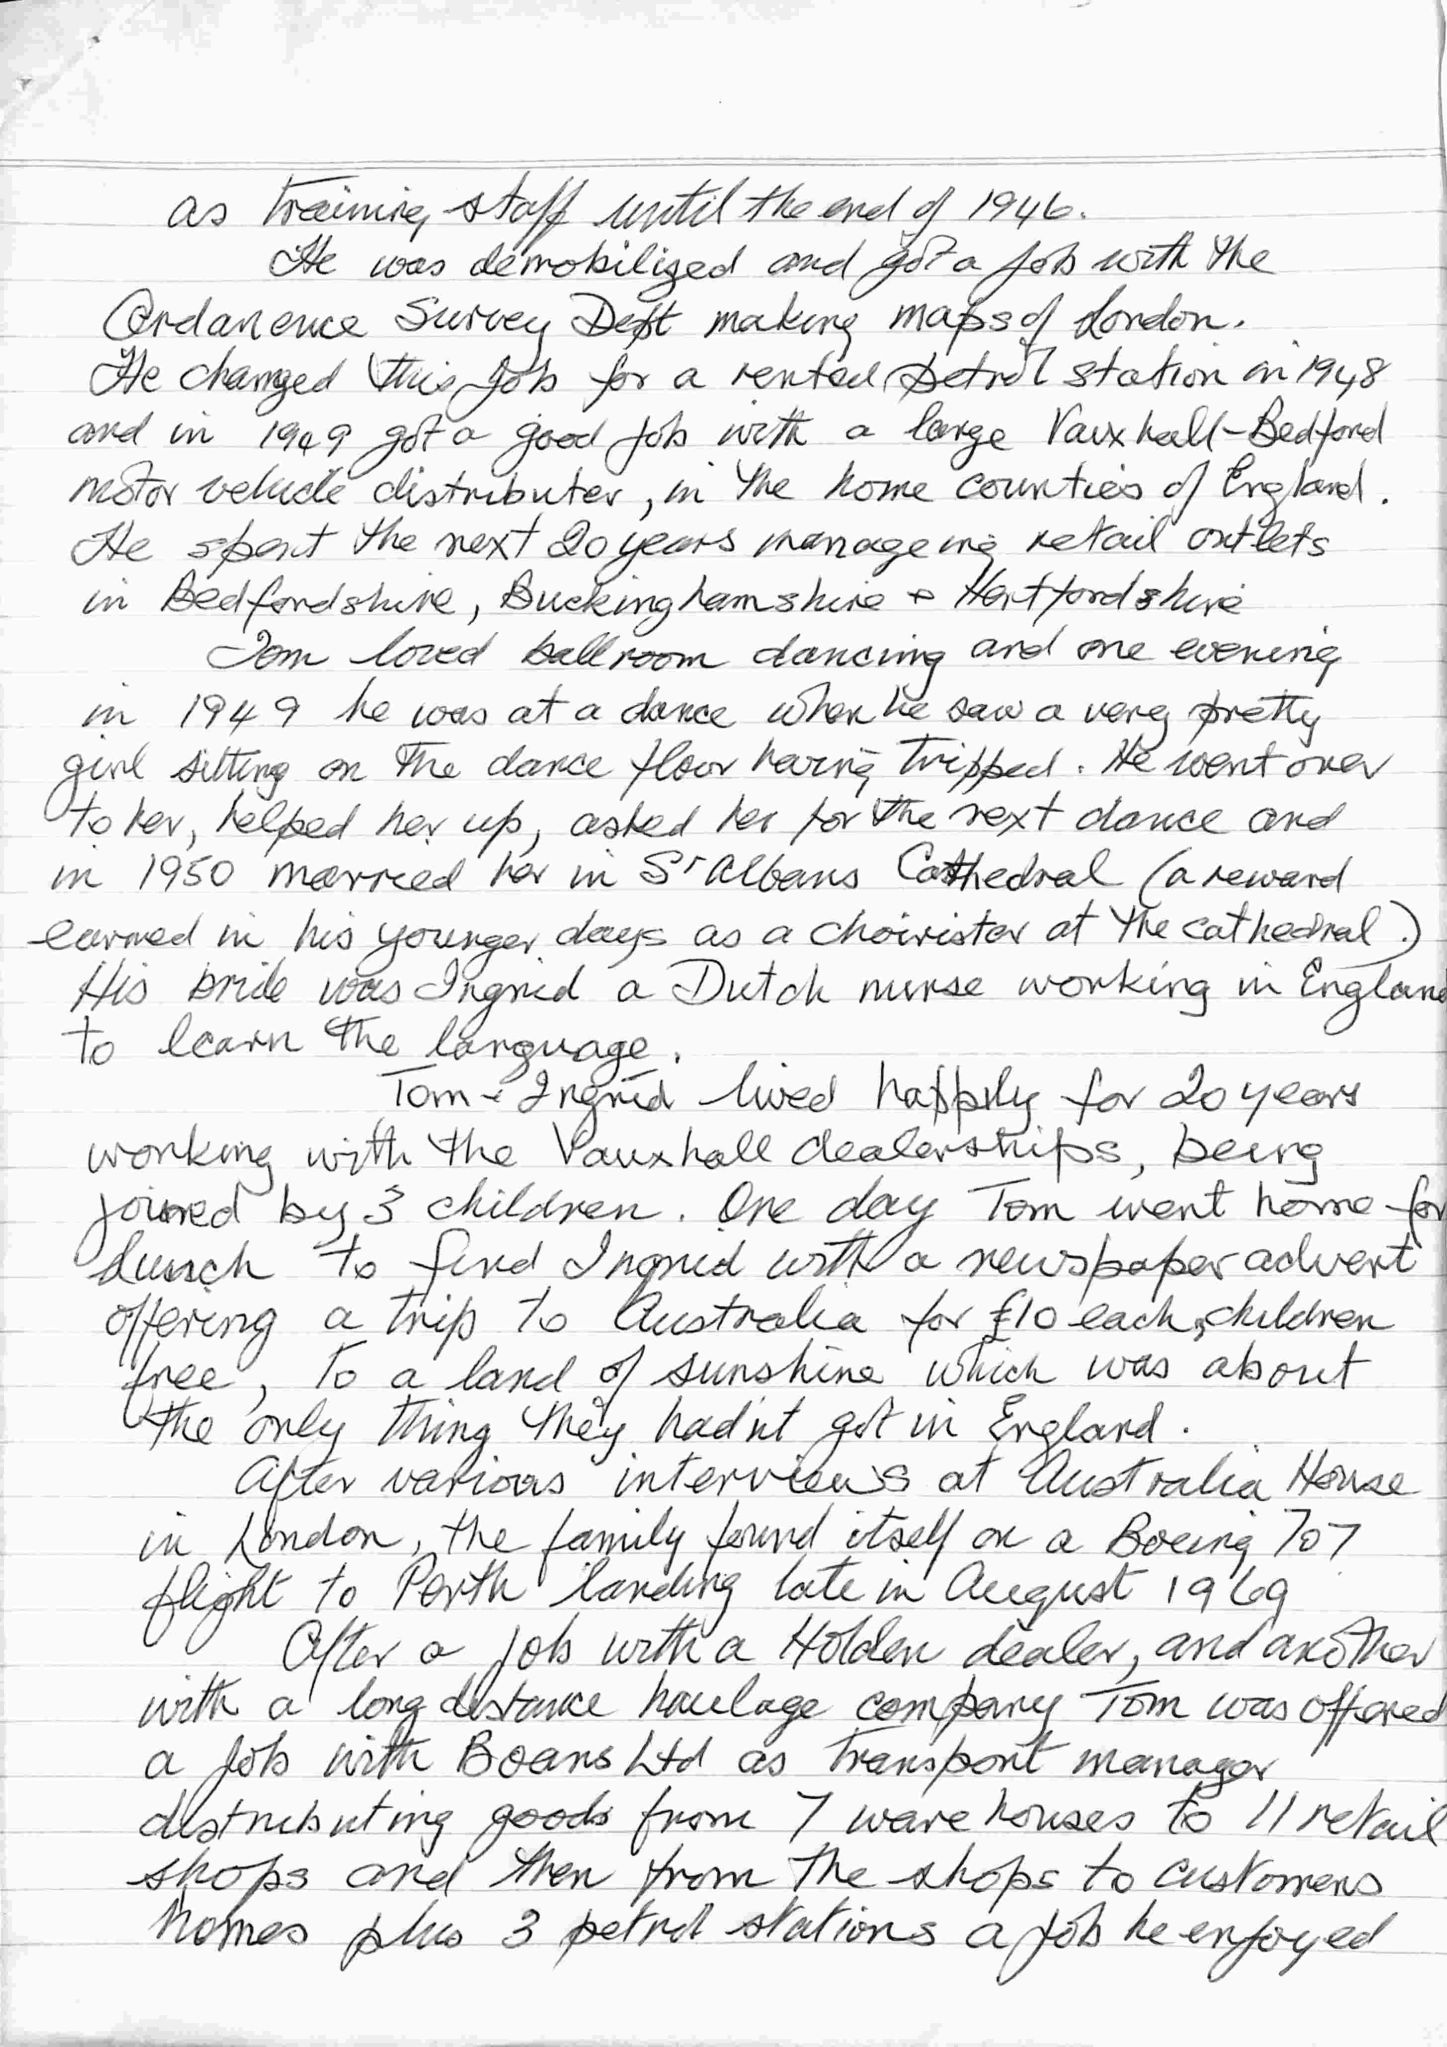 as training staff until the end of 1946.
He was demobilized and got a job with the
Ordanence Survey Dept making maps of London.
He changed this job for a rented petrol station in 1948
and in 1949 got a good job with a large Vauxhall-Bedford
motor vehicle distributer, in the home counties of England.
He spent the next 20 years manageing retail outlets
in Bedfordshire, Buckinghamshire + Hertfordshire
Tom loved ballroom dancing and one evening
in 1949 he was at a dance when he saw a very pretty
girl sitting on the dance floor having tripped. He went over
to her, helped her up, asked her for the next dance and
in 1950 married her in St Albans Cathedral (a reward
earned in his younger days as a choirister at the cathedral.)
His bride was Ingrid a Dutch nurse working in England
to learn the language.
Tom + Ingrid lived happily for 20 years
working with the Vauxhall dealerships, being
joined by 3 children. One day Tom went home for
lunch to find Ingrid with a newspaper advert
offering a trip to Australia for £10 each, children
free, to a land of sunshine which was about
the only thing they had'nt got in England.
After various interviews at Australia House
in London, the family found itself on a Boeing 707
flight to Perth landing late in August 1969
After a job with a Holden dealer, and another
with a long distance haulage company Tom was offered
a job with Boans Ltd as transport manager
distributing goods from 7 warehouses to 11 retail
shops and then from the shops to customers
homes plus 3 petrol stations a job he enjoyed